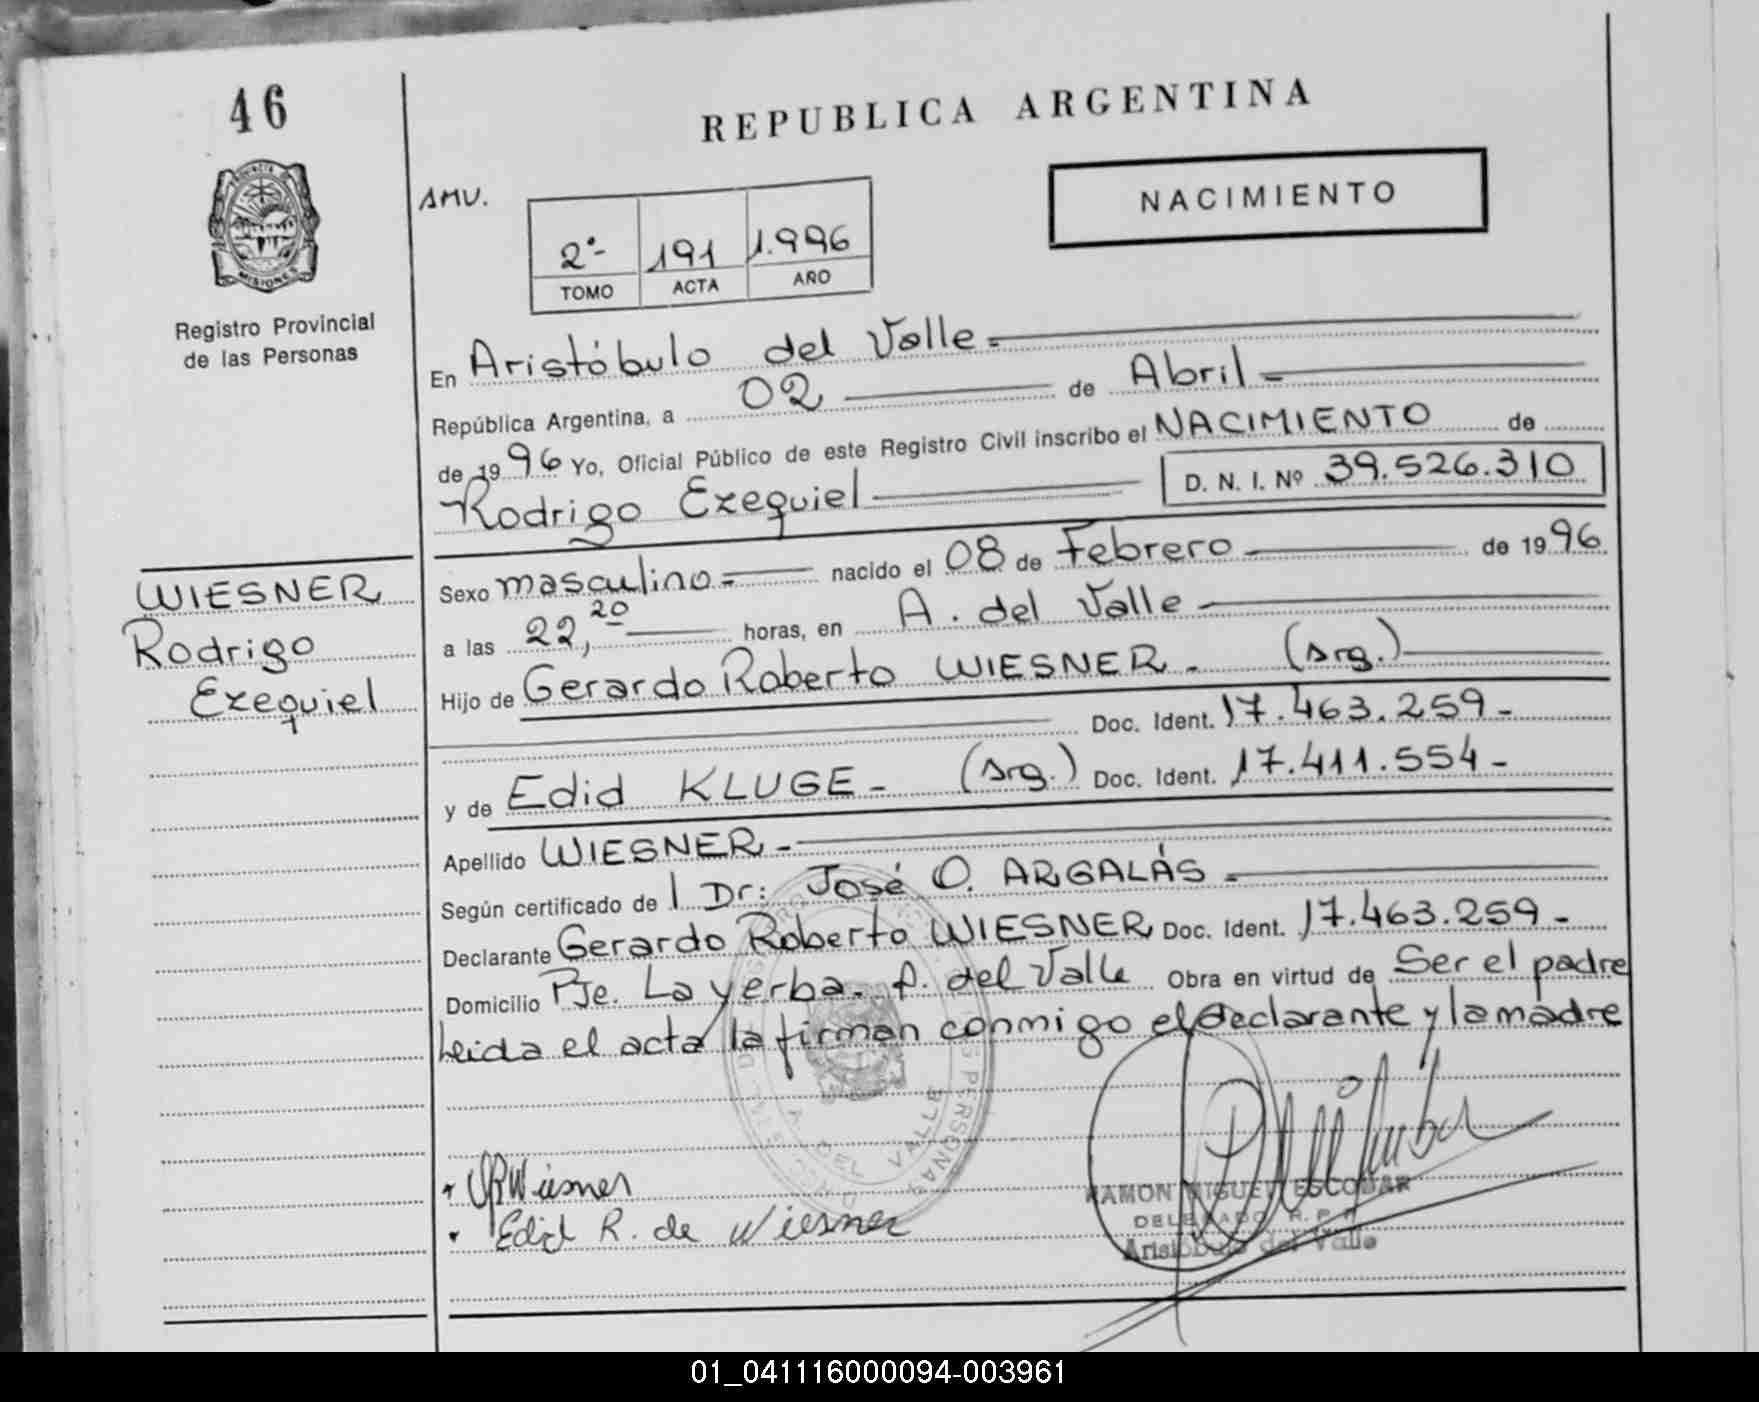 46
REPUBLICA ARGENTINA
MISIONES
Registro Provincial
de las Personas
AMV.
NACIMIENTO
2º- 191 1.996
TOMO ACTA AÑO
En Aristóbulo del Valle.-
República Argentina, a 02 de Abril.-
de 1996 Yo, Oficial Público de este Registro Civil inscribo el NACIMIENTO de
Rodrigo Ezequiel D. N. I. Nº 39.526.310
WIESNER
Rodrigo
Ezequiel
Sexo masculino.- nacido el 08 de Febrero de 1996
a las 22,20 horas, en A. del Valle
Hijo de Gerardo Roberto WIESNER.- (Arg.)
Doc. Ident. 17.463.259-
y de Edid KLUGE- (Arg.) Doc. Ident. 17.411.554-
Apellido WIESNER.-
Según certificado de l Dr: José O. ARGALÁS.-
Declarante Gerardo Roberto WIESNER Doc. Ident. 17.463.259-
Domicilio Pje. La yerba. A. del Valle Obra en virtud de Ser el padre
Leida el acta la firman conmigo el declarante y la madre
A. DEL VALLE
Wiesner
Edid R. de Wiesner
RAMON MIGUEL ESCOBAR
DELEGADO R.P.P.
Aristóbulo del Valle
01_041116000094-003961